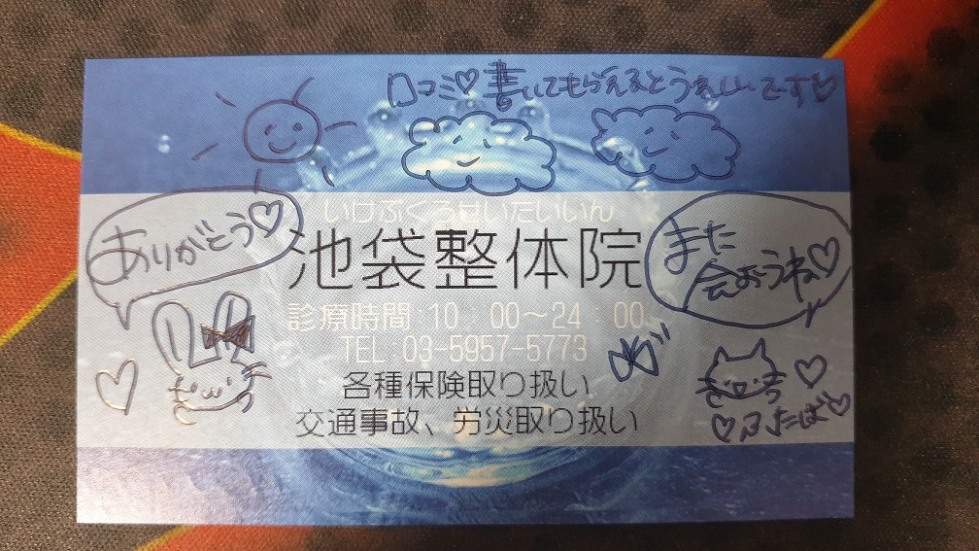 口コミ♡書いてもらえるとうれしいです♡
ありがとう♡
いけぶくろせいたいいん
池袋整体院
また
会おうね♡
診療時間:10:00〜24:00
TEL:03-5957-5773
各種保険取り扱い
交通事故、労災取り扱い
♡ふたば♡